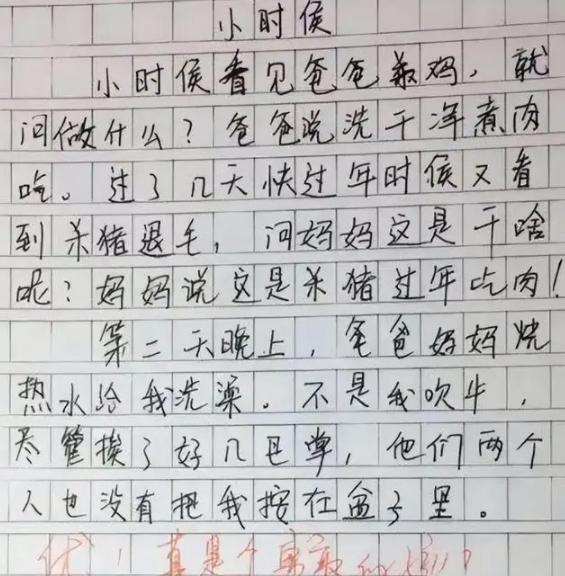 小时侯
小时侯看见爸爸杀鸡，就
问做什么？爸爸说洗干净煮肉
吃。过了几天快过年时侯又看
到杀猪退毛，问妈妈这是干啥
呢？妈妈说这是杀猪过年吃肉！
第二天晚上，爸爸妈妈烧
热水给我洗澡。不是我吹牛，
尽管挨了好几巴掌，他们两个
人也没有把我按在盆子里。
优！真是个勇敢的